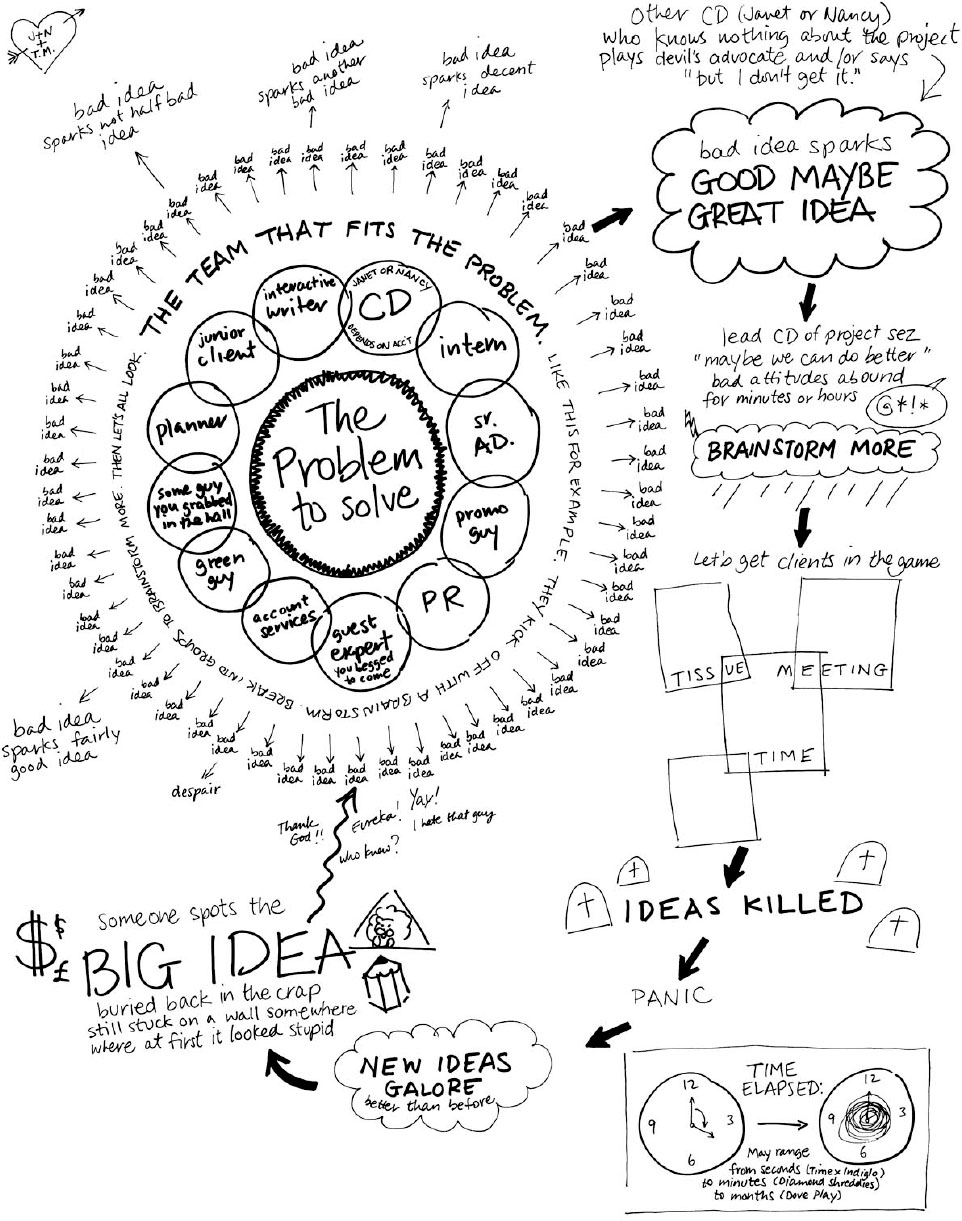 J+N
+
T.M.
Other CD (Janet or Nancy)
who knows nothing about the project
plays devil's advocate and/or says
"but I don't get it."
bad idea
sparks not half bad
idea
bad idea
sparks another
bad idea
bad idea
sparks decent
idea
bad
idea
bad
idea
bad
idea
bad
idea
bad
idea
bad
idea
bad
idea
bad
idea
bad
idea
bad
idea
bad
idea
bad
idea
bad
idea
bad
idea
bad
idea
bad
idea
bad
idea
bad
idea
bad
idea
bad
idea
bad
idea
bad
idea
bad
idea
bad
idea
bad
idea
bad
idea
bad
idea
bad
idea
bad
idea
bad
idea
bad
idea
bad
idea
bad
idea
bad
idea
bad
idea
bad
idea
bad
idea
bad
idea
bad
idea
bad
idea
bad
idea
bad
idea
bad
idea
bad
idea
bad
idea
bad
idea
bad
idea
bad
idea
bad
idea
bad
idea
bad
idea
bad
idea
bad
idea
bad
idea
THE TEAM THAT FITS THE PROBLEM.
LIKE THIS FOR EXAMPLE. THEY KICK OFF WITH A BRAINSTORM. BREAK INTO GROUPS TO BRAINSTORM MORE. THEN LET'S ALL LOOK.
The
Problem
to solve
JANET OR NANCY
CD
DEPENDS ON ACC'T
intern
sr.
A.D.
promo
guy
PR
guest
expert
you begged
to come
account
services
green
guy
some guy
you grabbed
in the hall
planner
junior
client
interactive
writer
bad idea
sparks fairly
good idea
despair
bad idea sparks
GOOD MAYBE
GREAT IDEA
lead CD of project sez
"maybe we can do better"
bad attitudes abound
for minutes or hours
@*!*
BRAINSTORM MORE
Let's get clients in the game
TISSUE MEETING
TIME
IDEAS KILLED
PANIC
TIME
ELAPSED:
12
3
6
9
12
3
6
9
May range
from seconds (Timex Indiglo)
to minutes (Diamond Shreddies)
to months (Dove Play)
NEW IDEAS
GALORE
better than before
Someone spots the
$ $ £
BIG IDEA
buried back in the crap
still stuck on a wall somewhere
where at first it looked stupid
Thank
God!!
who knew?
Eureka!
Yay!
I hate that guy